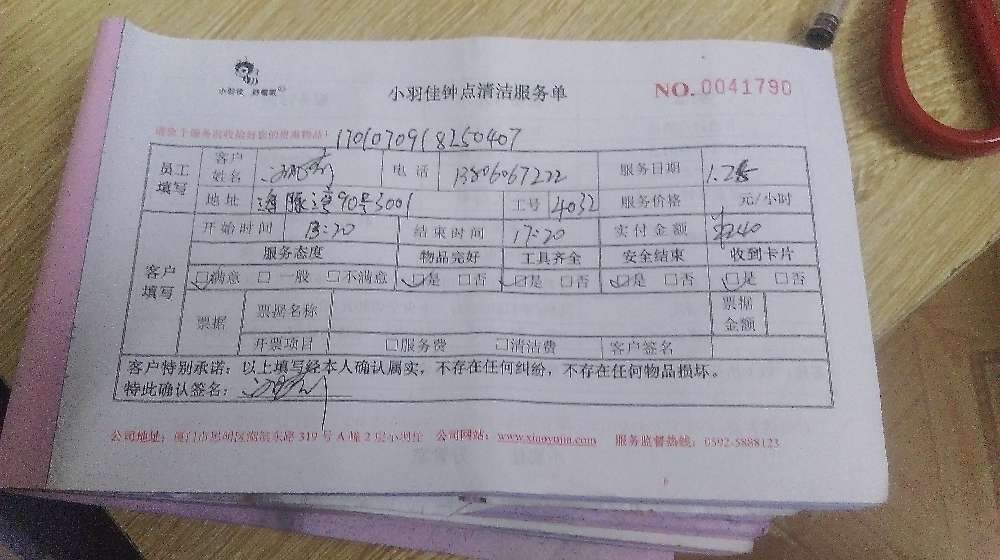 小羽佳
小羽佳钟点清洁服务单 NO.0041790
请您于服务前收拾好您的贵重物品!
1701070918250407
员工填写 客户姓名 电话 13806067222 服务日期 1.25
地址 90号3001 工号 4032 服务价格 元/小时
客户填写 开始时间 13:20 结束时间 17:20 实付金额 40
服务态度 物品完好 工具齐全 安全结束 收到卡片
☑满意 □一般 □不满意 ☑是 □否 ☑是 □否 ☑是 □否 ☑是 □否
票据 票据名称 票据金额
开票项目 □服务费 □清洁费 客户签名
客户特别承诺：以上填写经本人确认属实，不存在任何纠纷，不存在任何物品损坏。
特此确认签名：
公司地址：厦门市思明区湖滨东路319号A幢2层小羽佳 公司网站：www.xiaoyujia.com 服务监督热线：0592-5888123